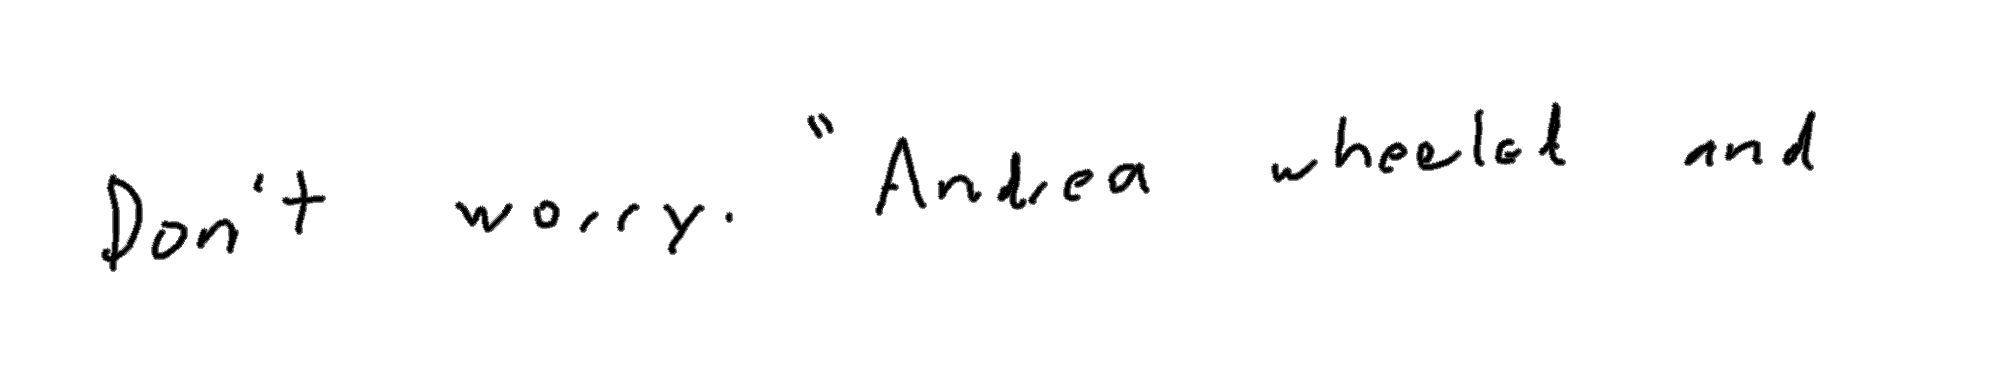 Don't worry." Andrea wheeled and